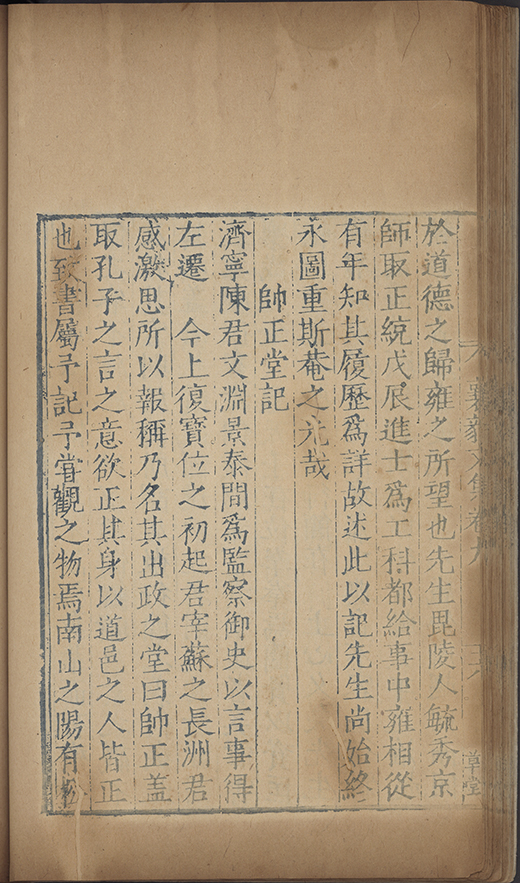 襄毅文集卷九
草堂
於道德之歸雍之所望也先生毘陵人毓秀京
師取正統戊辰進士爲工科都給事中雍相從
有年知其履歷爲詳故述此以記先生尚始終
永圖重斯菴之光哉
帥正堂記
濟寧陳君文淵景泰間爲監察御史以言事得
左遷　今上復寶位之初起君宰蘇之長洲君
感激思所以報稱乃名其出政之堂曰帥正蓋
取孔子之言之意欲正其身以道邑之人皆正
也致書屬予記予嘗觀之物焉南山之陽有松